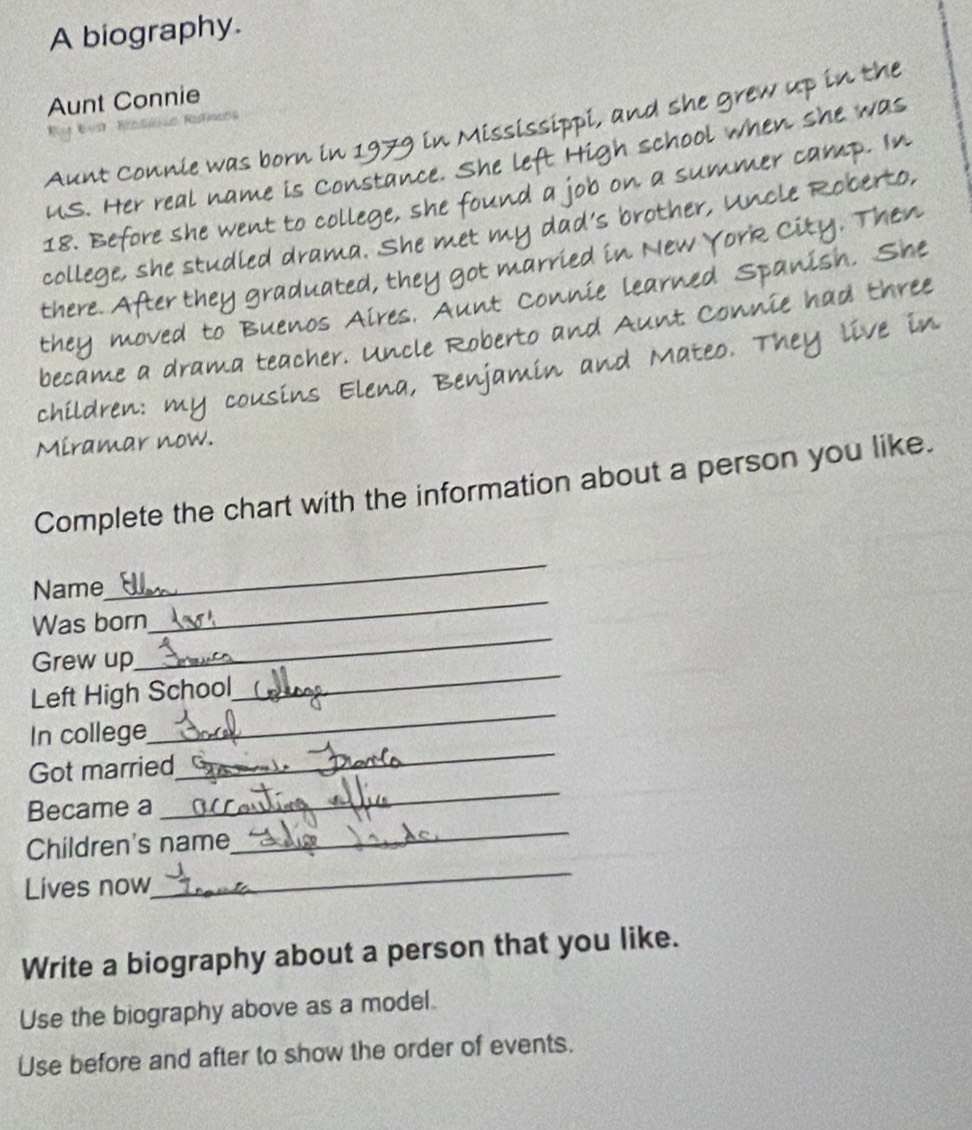 A biography.
Aunt Connie
Aunt Connie was born in 1979 in Mississippi, and she grew up in the
US. Her real name is Constance. She left High school when she was
18. Before she went to college, she found a job on a summer camp. In
college, she studied drama. She met my dad's brother, Uncle Roberto,
there. After they graduated, they got married in New York City. Then
they moved to Buenos Aires. Aunt Connie learned Spanish. She
became a drama teacher. Uncle Roberto and Aunt Connie had three
children: my cousins Elena, Benjamín and Mateo. They live in
Miramar now.
Complete the chart with the information about a person you like.
Name Ellen
Was born
Grew up
Left High School College
In college
Got married
Became a accouting office
Children's name
Lives now
Write a biography about a person that you like.
Use the biography above as a model.
Use before and after to show the order of events.